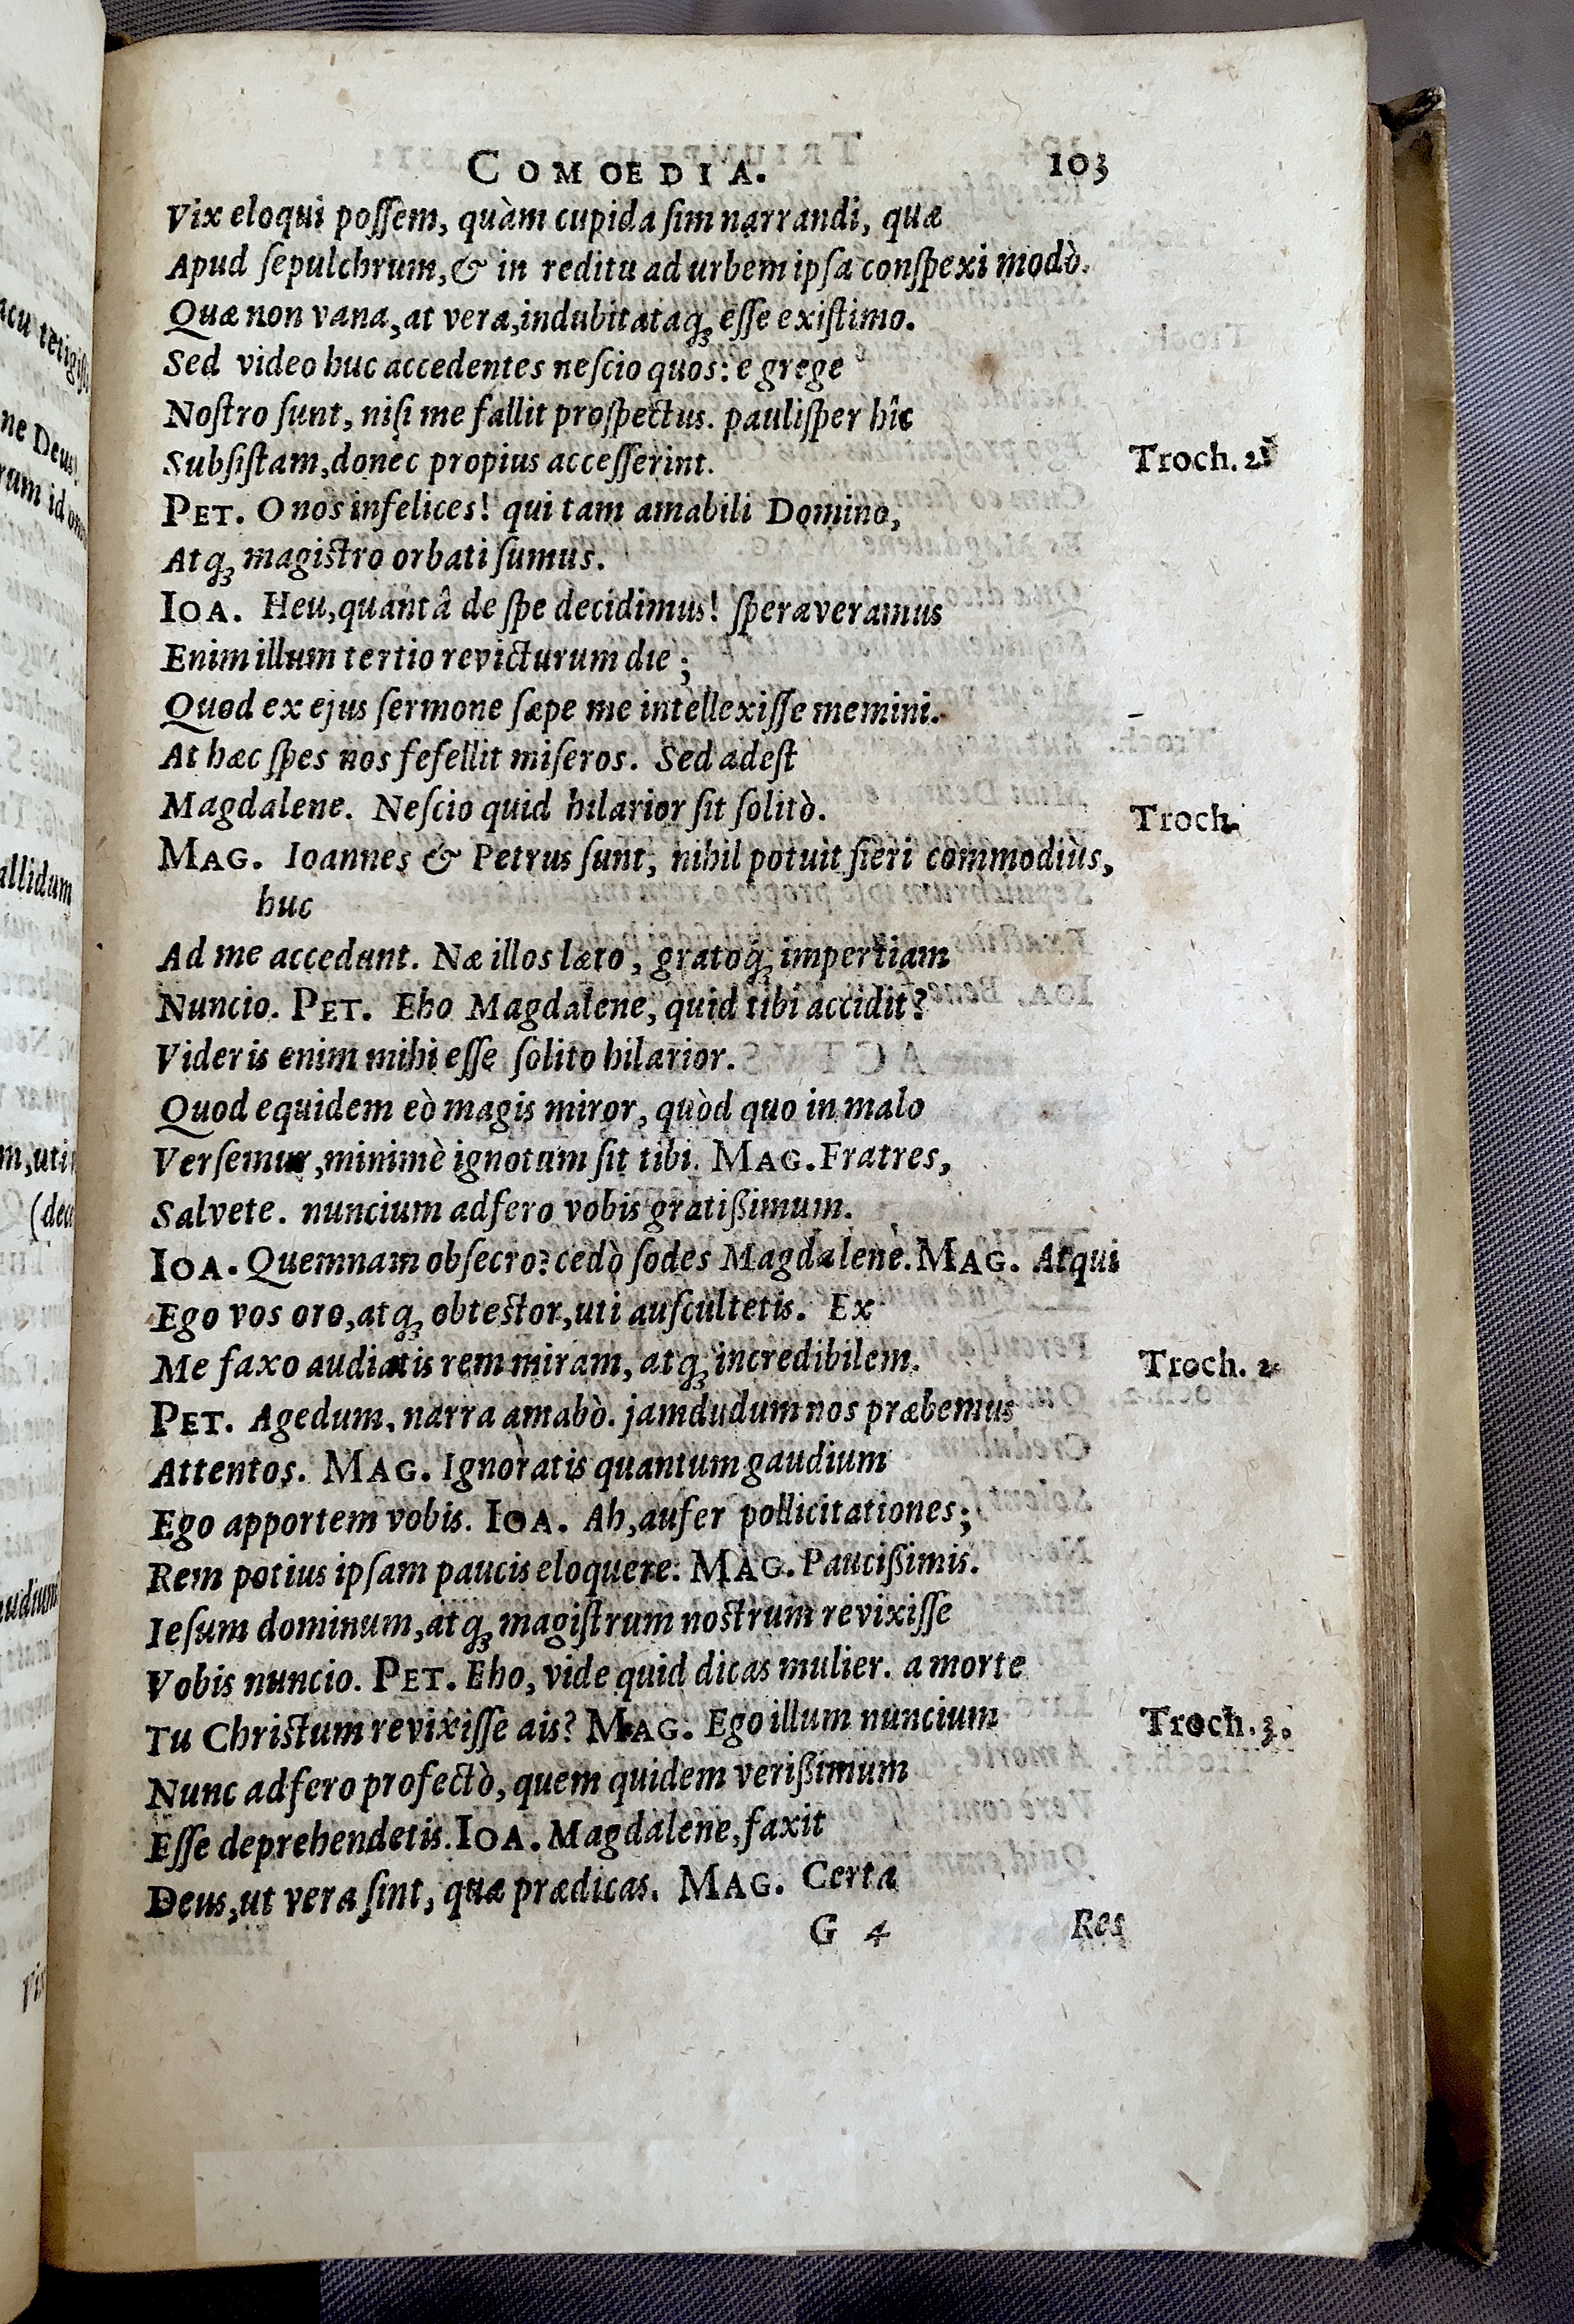 COMOEDIA. 103
Vix eloqui possem, quàm cupida sim narrandi, quæ
Apud sepulchrum, & in reditu ad urbem ipsa conspexi modò.
Quæ non vana, at vera, indubitataq́ꝫ esse existimo.
Sed video huc accedentes nescio quos: e grege
Nostro sunt, nisi me fallit prospectus. paulisper hîc
Subsistam, donec propius accesserint. Troch. 2
PET. O nos infelices! qui tam amabili Domino,
Atqꝫ magistro orbati sumus.
IOA. Heu, quantâ de spe decidimus! speraveramus
Enim illum tertio revicturum die;
Quod ex ejus sermone sæpe me intellexisse memini.
At hæc spes nos fefellit miseros. Sed adest
Magdalene. Nescio quid hilarior sit solitò. Troch.
MAG. Ioannes & Petrus sunt, nihil potuit fieri commodiùs,
huc
Ad me accedunt. Næ illos læto, gratoq́ꝫ impertiam
Nuncio. PET. Eho Magdalene, quid tibi accidit?
Videris enim mihi esse solito hilarior.
Quod equidem eò magis miror, quòd quo in malo
Versemur, minimè ignotum sit tibi. MAG. Fratres,
Salvete. nuncium adfero vobis gratißimum.
IOA. Quemnam obsecro? cedò sodes Magdalene. MAG. Atqui
Ego vos oro, atqꝫ obtestor, uti auscultetis. Ex
Me faxo audiatis rem miram, atqꝫ incredibilem. Troch. 2
PET. Agedum, narra amabò. jamdudum nos præbemus
Attentos. MAG. Ignoratis quantum gaudium
Ego apportem vobis. IOA. Ah, aufer pollicitationes;
Rem potius ipsam paucis eloquere. MAG. Paucißimis.
Iesum dominum, atqꝫ magistrum nostrum revixisse
Vobis nuncio. PET. Eho, vide quid dicas mulier. a morte
Tu Christum revixisse ais? MAG. Ego illum nuncium Troch. 3.
Nunc adfero profectò, quem quidem verißimum
Esse deprehendetis. IOA. Magdalene, faxit
Deus, ut vera sint, quæ prædicas. MAG. Certa
G 4 Res